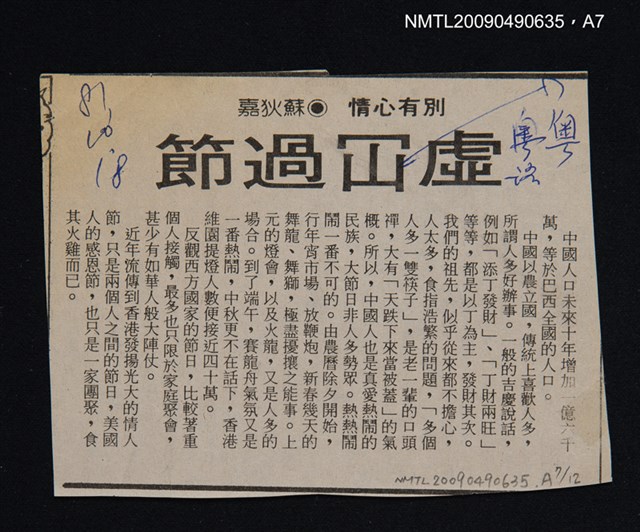 NMTL20090490635,A7
別有心情 ◉ 蘇狄嘉
虛冚過節
粵
粵語
中國人口未來十年增加一億六千
萬,等於巴西全國的人口。
中國以農立國,傳統上喜歡人多,
所謂人多好辦事。一般的吉慶說話,
例如「添丁發財」、「丁財兩旺」
等等,都是以丁為主,發財其次。
我們的祖先,似乎從來都不擔心,
人太多,食指浩繁的問題,「多個
人多一雙筷子」,是老一輩的口頭
禪,大有「天跌下來當被蓋」的氣
概。所以,中國人也是真愛熱鬧的
民族,大節日非人多勢眾。熱熱鬧
鬧一番不可的。由農曆除夕開始,
行年宵市場、放鞭炮,新春幾天的
舞龍、舞獅,極盡擾攘之能事。上
元的燈會,以及火龍,又是人多的
場合。到了端午,賽龍舟氣氛又是
一番熱鬧,中秋更不在話下,香港
維園提燈人數便接近四十萬。
反觀西方國家的節日,比較著重
個人接觸,最多也只限於家庭聚會,
甚少有如華人般大陣仗。
近年流傳到香港發揚光大的情人
節,只是兩個人之間的節日,美國
人的感恩節,也只是一家團聚,食
其火雞而已。
NMTL20090490635.A7/12